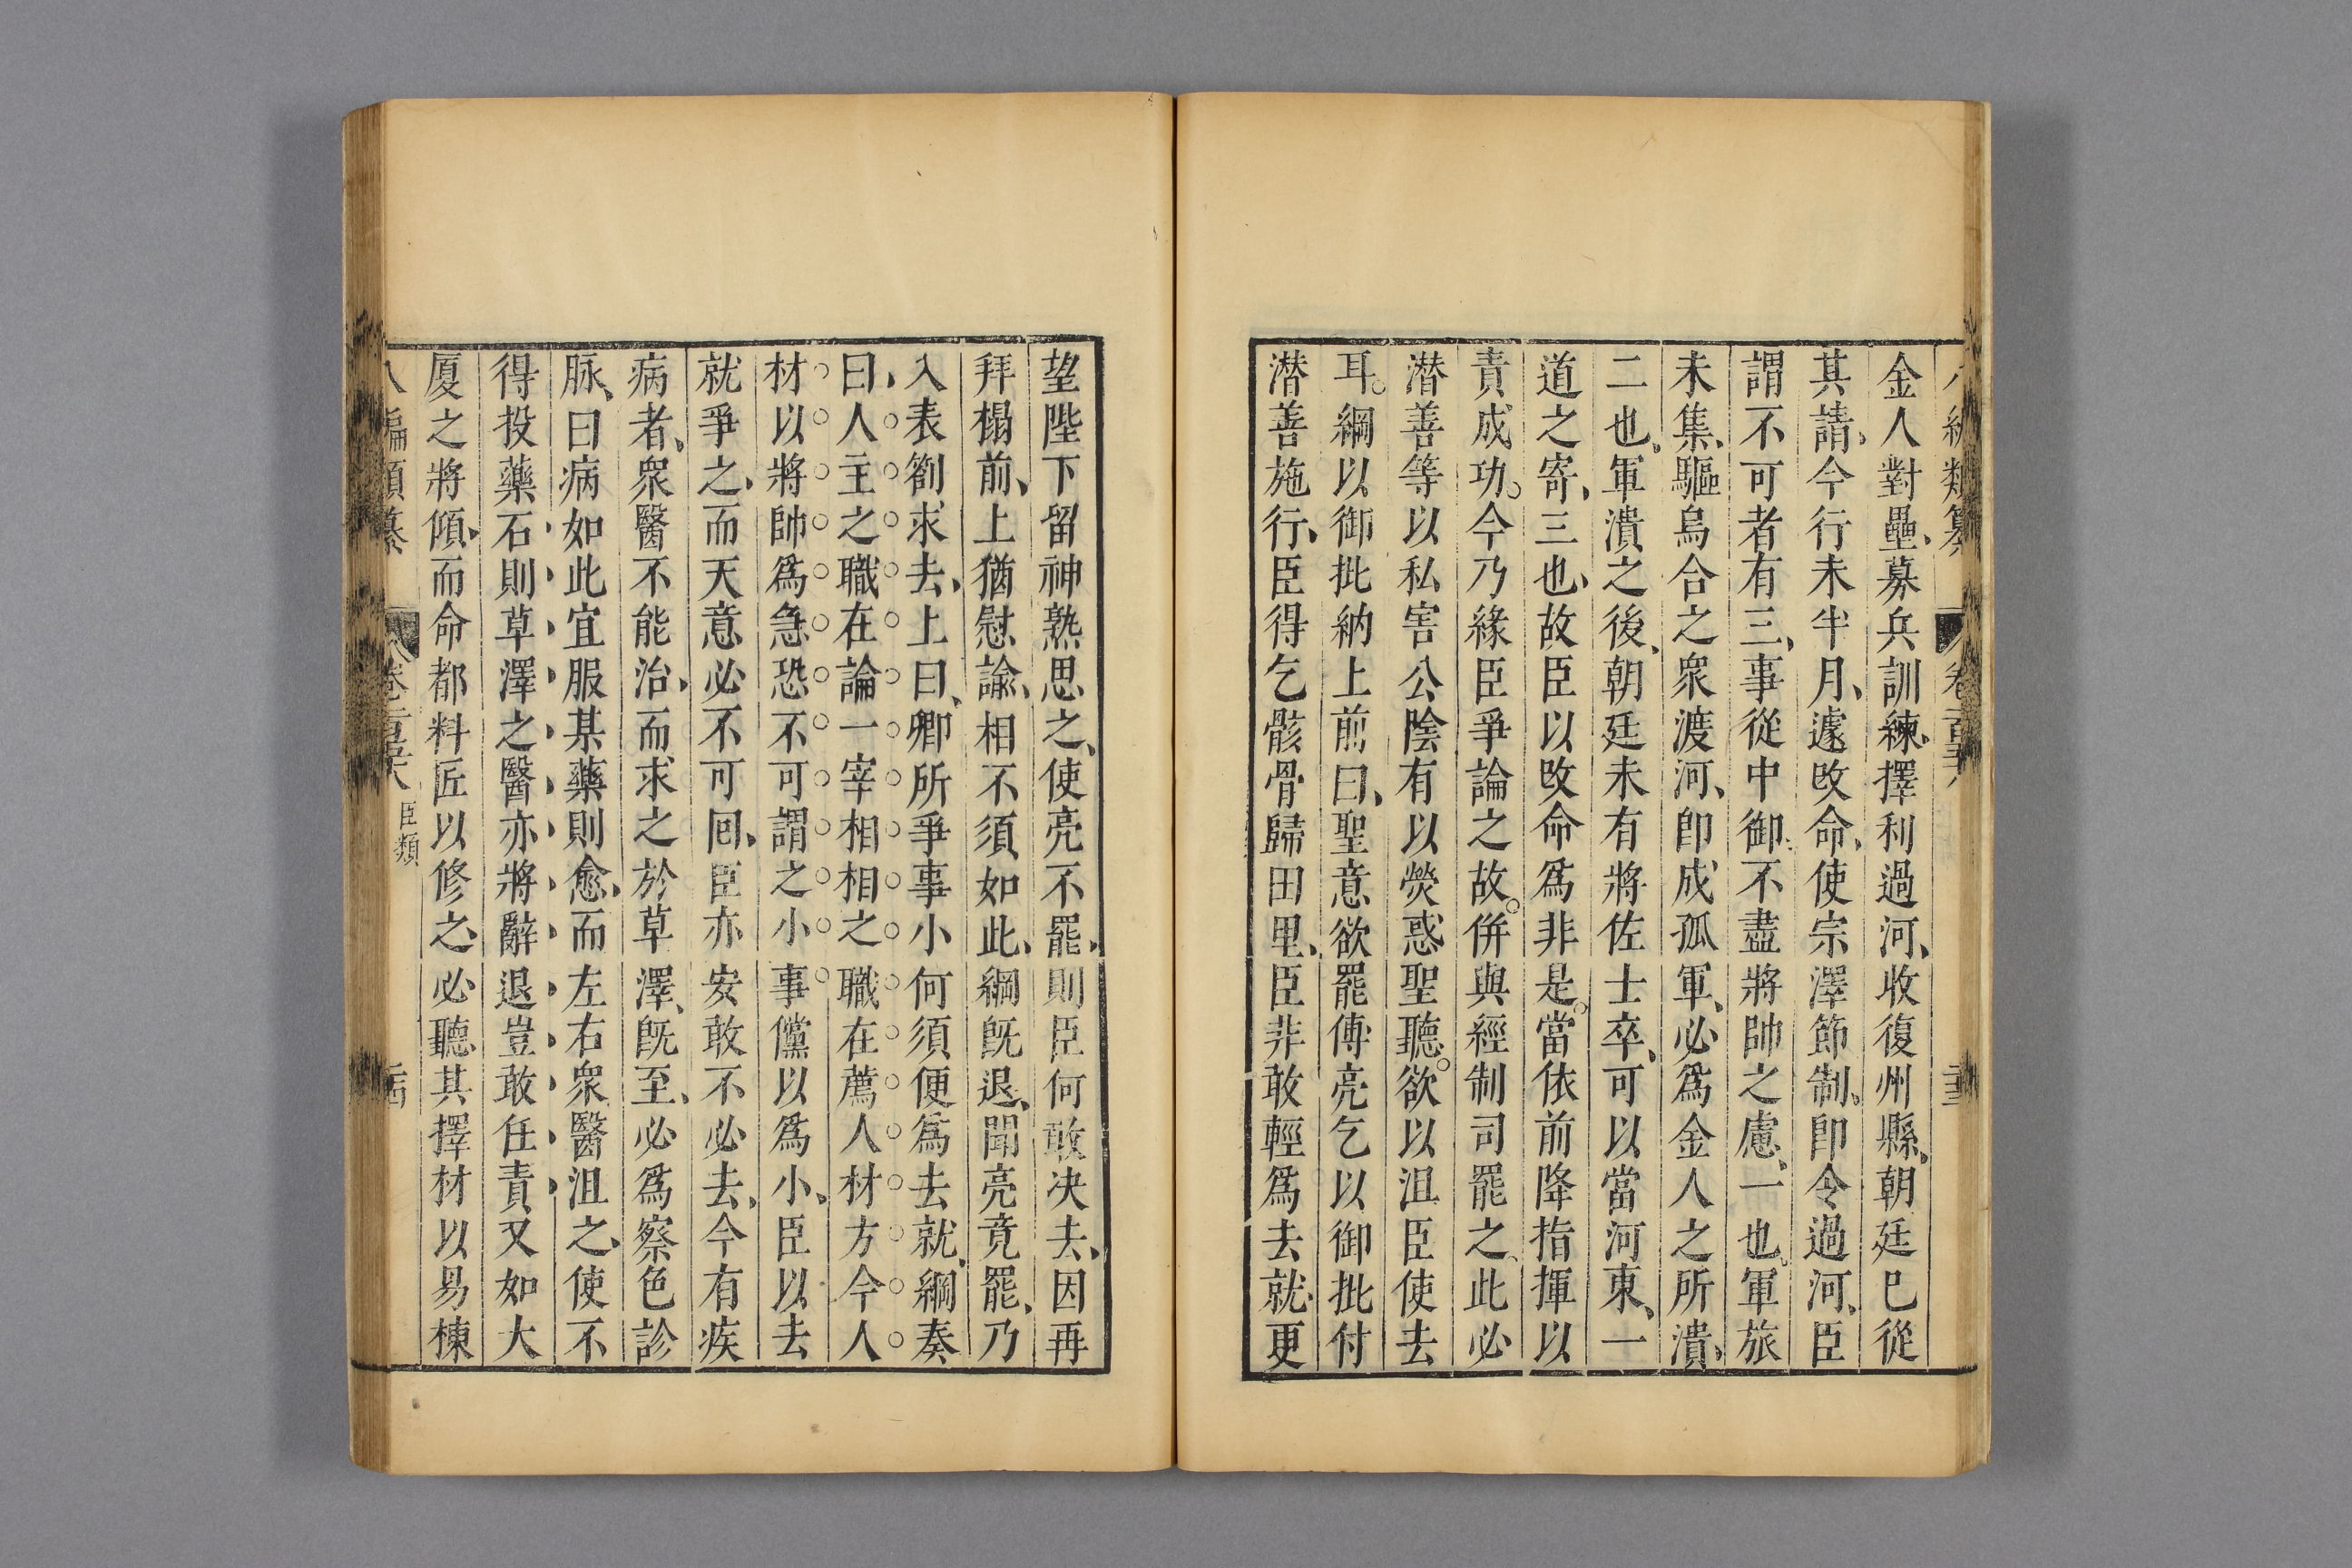 金人對壘、募兵訓練、擇利過河、收復州縣、朝廷巳從
其請、今行未半月、遽攺命、使宗澤節制、卽令過河、臣
謂不可者有三、事從中御、不盡將帥之慮、一也。軍旅
未集、驅烏合之衆渡河、卽成孤軍、必爲金人之所潰、
二也。軍潰之後、朝廷未有將佐士卒、可以當河東、一
道之寄、三也、故臣以攺命爲非是。當依前降指揮以
責成功。今乃緣臣爭論之故。併與經制司罷之、此必
潜善等以私害公陰有以熒惑聖聽。欲以沮臣使去
耳。綱以御批納上前曰、聖意欲罷傅亮乞以御批付
潜善施行、臣得乞骸骨歸田里、臣非敢輕爲去就、更
望陛下留神熟思之、使亮不罷、則臣何敢決去、因再
拜榻前、上猶慰諭、相不須如此、綱旣退、聞亮竟罷、乃
入表劄求去、上曰、卿所爭事小何須便爲去就、綱奏
曰、人主之職在論一宰相相之職在薦人材方今人
材以將帥爲急恐不可謂之小事儻以爲小、臣以去
就爭之、而天意必不可囘、臣亦安敢不必去、今有疾
病者、衆醫不能治、而求之於草澤、旣至、必爲察色診
脉、曰病如此宜服某藥則愈、而左右衆醫沮之、使不
得投藥石則草澤之醫亦將辭退豈敢任責又如大
厦之將傾、而命都料匠以修之、必聽其擇材以易棟
編類纂 卷二百三十八 臣類 二十四